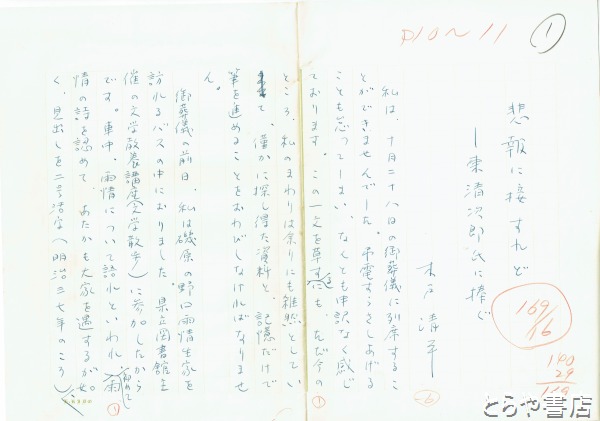 P10~11
①
悲報に接すれど
―栗清次郎氏に捧ぐ
木戸清平
私は、十月二十八日の御葬儀に列席するこ
とができませんでした。弔電すらさしあげる
ことも怠ってしまい、なんとも申訳なく感じ
ております。この一文を草すにも、ただ今の
ところ、私のまわりは余りにも雑然としてい
て、僅かに探し得た資料と、記憶だけで
筆を進めることをおわびしなければなりませ
ん。
御葬儀の前日、私は磯原の野口雨情生家を
訪れるバスの中におりました。県立図書館主
催の文学教養講座(文学散歩)に参加したから
です。車中、雨情について語れといわれ、雨
情の詩を認めて、あたかも大家を遇するが如
く、見出しを二号活字(明治三七年のころ)
169
16
140
29
169
①
①
とらや書店